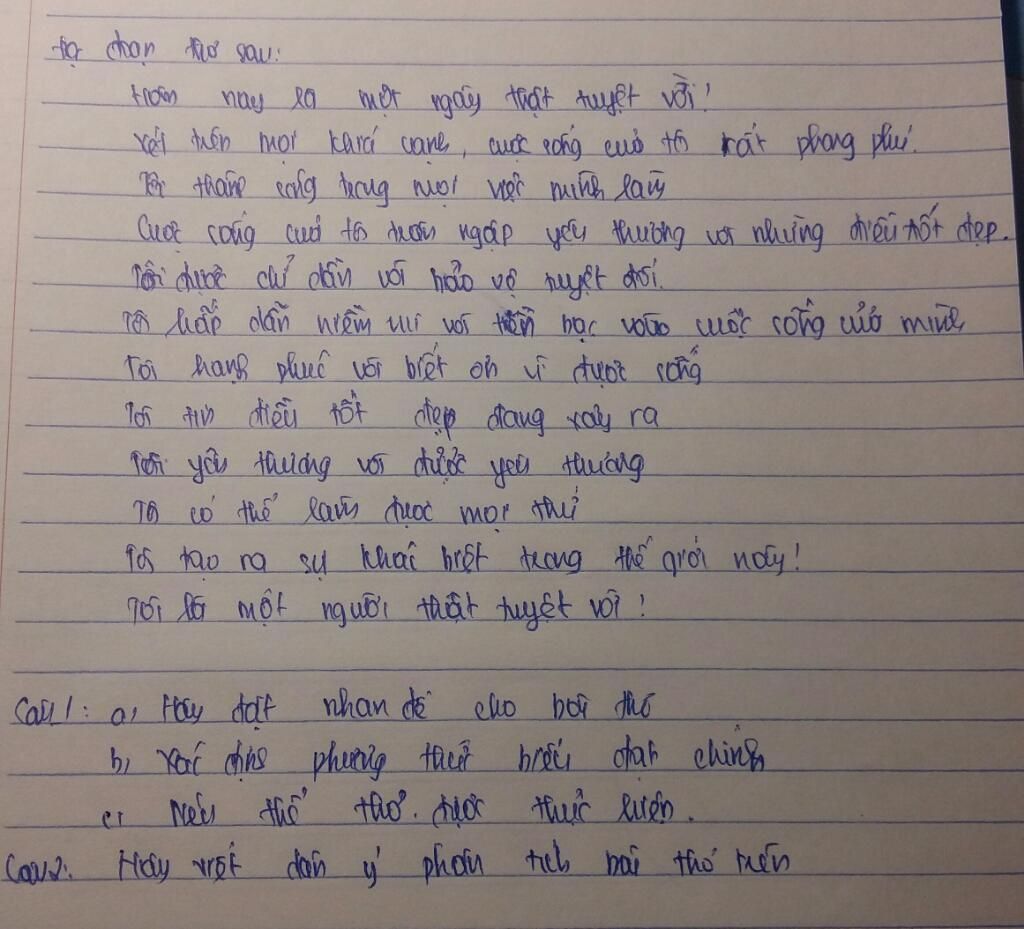 tạ chọn thơ sau:
Hôm nay là một ngày thật tuyệt vời!
Xét trên mọi khía cạnh, cuộc sống của tôi rất phong phú.
Tôi thành công trong mọi việc mình làm
Cuộc sống của tôi tràn ngập yêu thương và những điều tốt đẹp.
Tôi được chỉ dẫn và bảo vệ tuyệt đối.
Tôi hấp dẫn niềm vui và tiền bạc vào cuộc sống của mình
Tôi hạnh phúc và biết ơn vì được sống
Tôi tin điều tốt đẹp đang xảy ra
Tôi yêu thương và được yêu thương
Tôi có thể làm được mọi thứ
Tôi tạo ra sự khác biệt trong thế giới này!
Tôi là một người thật tuyệt vời!
Câu 1: a, Hãy đặt nhan đề cho bài thơ
b, Xác định phương thức biểu đạt chính
c, Nêu thể thơ được thực hiện.
Câu 2: Hãy viết dàn ý phân tích bài thơ trên